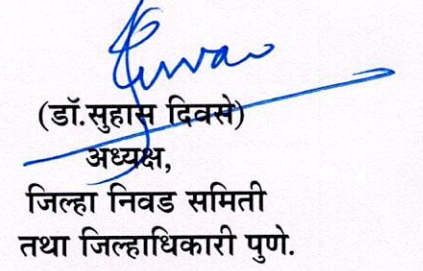 (डॉ.सुहास दिवसे)
अध्यक्ष,
जिल्हा निवड समिती
तथा जिल्हाधिकारी पुणे.